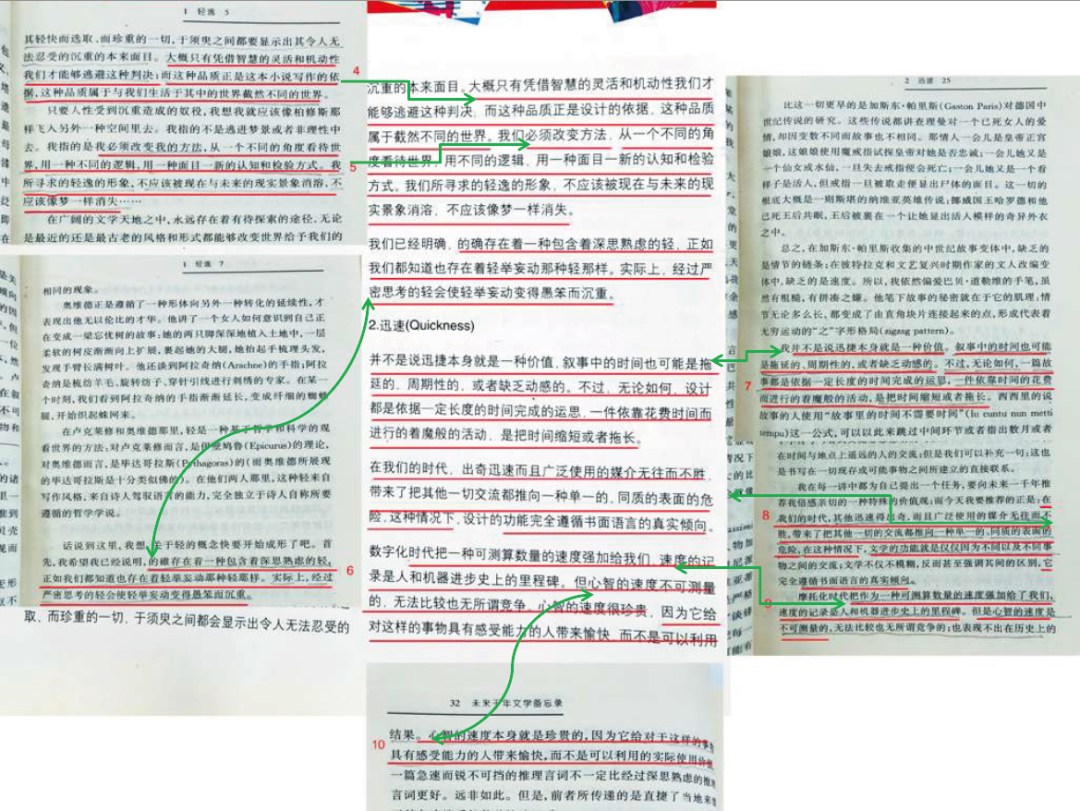 1 轻逸 5
其轻快而选取、而珍重的一切,于须臾之间都要显示出其令人无
法忍受的沉重的本来面目。大概只有凭借智慧的灵活和机动性
我们才能够逃避这种判决;而这种品质正是这本小说写作的依
据,这种品质属于与我们生活于其中的世界截然不同的世界。
只要人性受到沉重造成的奴役,我想我就应该像柏修斯那
样飞入另外一种空间里去。我指的不是逃进梦景或者非理性中
去。我指的是我必须改变我的方法,从一个不同的角度看待世
界,用一种不同的逻辑,用一种面目一新的认知和检验方式。我
所寻求的轻逸的形象,不应该被现在与未来的现实景象消溶,不
应该像梦一样消失……
在广阔的文学天地之中,永远存在着有待探索的途径,无论
是最近的还是最古老的风格和形式都能够改变世界给予我们的
4
5
1 轻逸 7
相同的现象。
奥维德正是遵循了一种形体向另外一种转化的延续性,才
表现出他无以伦比的才华。他讲了一个女人如何意识到自己正
在变成一梁忘忧树的故事:她的两只脚深深地植入土地中,一层
柔软的树皮渐渐向上扩展,裹起她的大腿,她抬起手梳理头发,
发现手臂长满树叶。他还谈到阿拉奇纳(Arachne)的手指;阿拉
奇纳是梳纺羊毛、旋转纺子、穿针引线进行刺绣的专家。在某一
个时刻,我们看到阿拉奇纳的手指渐渐延长,变成纤细的蜘蛛
腿,开始织起蛛网来。
在卢克莱修和奥维德那里,轻是一种基于哲学和科学的观
看世界的方法:对卢克莱修而言,是伊壁鸠鲁(Epicurus)的理论,
对奥维德而言,是毕达哥拉斯(Pythagoras)的(而奥维德所展现
的毕达哥拉斯是十分类似佛的)。在他们两人那里,这种轻来自
写作风格,来自诗人驾驭语言的能力,完全独立于诗人自称所要
遵循的哲学学说。
话说到这里,我想,关于轻的概念快要开始成形了吧。首
先,我希望我已经说明,的确存在着一种包含着深思熟虑的轻,
正如我们都知道也存在着轻举妄动那种轻那样。实际上,经过
严密思考的轻会使轻举妄动变得愚笨而沉重。
6
取、而珍重的一切、于须臾之间都会显示出令人无法忍受的
沉重的本来面目。大概只有凭借智慧的灵活和机动性我们才
能够逃避这种判决。而这种品质正是设计的依据,这种品质
属于截然不同的世界。我们必须改变方法,从一个不同的角
度看待世界,用不同的逻辑,用一种面目一新的认知和检验
方式。我们所寻求的轻逸的形象,不应该被现在与未来的现
实景象消溶,不应该像梦一样消失。
我们已经明确,的确存在着一种包含着深思熟虑的轻,正如
我们都知道也存在着轻举妄动那种轻那样。实际上,经过严
密思考的轻会使轻举妄动变得愚笨而沉重。
2.迅速(Quickness)
并不是说迅捷本身就是一种价值,叙事中的时间也可能是拖
延的、周期性的,或者缺乏动感的。不过,无论如何,设计
都是依据一定长度的时间完成的运思,一件依靠花费时间而
进行的着魔般的活动,是把时间缩短或者拖长。
在我们的时代,出奇迅速而且广泛使用的媒介无往而不胜,
带来了把其他一切交流都推向一种单一的、同质的表面的危
险,这种情况下,设计的功能完全遵循书面语言的真实倾向。
数字化时代把一种可测算数量的速度强加给我们,速度的记
录是人和机器进步史上的里程碑。但心智的速度不可测量
的,无法比较也无所谓竞争。心智的速度很珍贵,因为它给
对这样的事物具有感受能力的人带来愉快,而不是可以利用
2 迅速 25
比这一切更早的是加斯东·帕里斯(Gaston Paris)对德国中
世纪传说的研究。这些传说都讲在理曼对一个已死女人的爱
情,却因变数不同而故事也不相同。那情人一会儿是皇帝正宫
娘娘,这娘娘使用魔戒指试探皇帝对她是否忠诚;一会儿她又是
一个仙女或水仙,一旦失去戒指便会死亡;一会儿她又是一个看
样子是活人,但戒指一旦被取走便显出尸体的面目。这一切的
根底大概是一则斯堪的纳维亚英雄传说:挪威国王哈罗德和他
已死王后共眠,王后被裹在一个让她显出活人模样的奇异外衣
之中。
总之,在加斯东·帕里斯收集的中世纪故事变体中,缺乏的
是情节的链条;在彼特拉克和文艺复兴时期作家的文人改编变
体中,缺乏的是速度。所以,我依然偏爱巴贝·道勒维的手笔,虽
然有粗糙,有拼凑之嫌。他笔下故事的秘密就在于它的肌理:情
节无论多么长,都变成了由直角块片连接起来的点,形成代表着
无穷运动的“之”字形格局(zigzag pattern)。
我并不是说迅捷本身就是一种价值。叙事中的时间也可能
是拖延的,周期性的,或者缺乏动感的。不过,无论如何,一篇故
事都是依据一定长度的时间完成的运思,一件依靠时间的花费
而进行的着魔般的活动,是把时间缩短或者拖长。西西里的说
故事的人使用“故事里的时间不需要时间”(lu cuntu nun metti
tempu)这一公式,可以以此来跳过中间环节或者指出数月或者
7
在时间与地点上遥远的人的交流;但是我们可以补充一句:这也
是书写在一切现存或可能事物之间所建立的直接联系。
我在每一讲中都为自己提出一个任务,要向未来一千年推
荐我倍感亲切的一种特殊的价值观;而今天我要推荐的正是:在
我们的时代,其他迅速得出奇,而且广泛使用的媒介无往而不
胜,带来了把其他一切的交流都推向一种单一的、同质的表面的
危险,在这种情况下,文学的功能就是仅仅因为不同以及不同事
物之间的交流;文学不仅不模糊,反而甚至强调其间的区别,它
完全遵循书面语言的真实倾向。
摩托化时代把作为一种可测算数量的速度强加给了我们,
速度的记录是人和机器进步史上的里程碑。但是心智的速度是
不可测量的,无法比较也无所谓竞争的;也表现不出在历史上的
8
9
32 未来千年文学备忘录
结果。心智的速度本身就是珍贵的,因为它给对于这样的事物
具有感受能力的人带来愉快,而不是可以利用的实际使用价值
一篇急速而锐不可挡的推理言词不一定比经过深思熟虑的推
言词更好。远非如此。但是,前者所传递的是直接了当地来
10